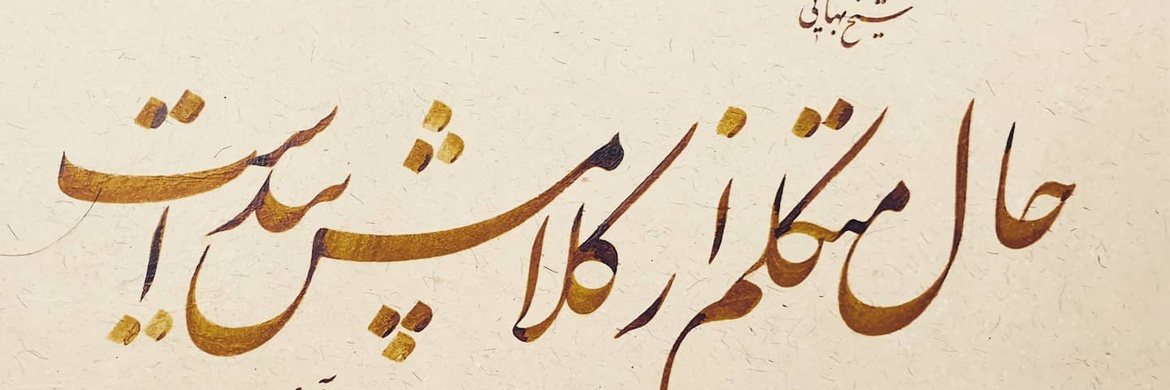 شیخ بهایی
حال متکلم از کلامش پیداست